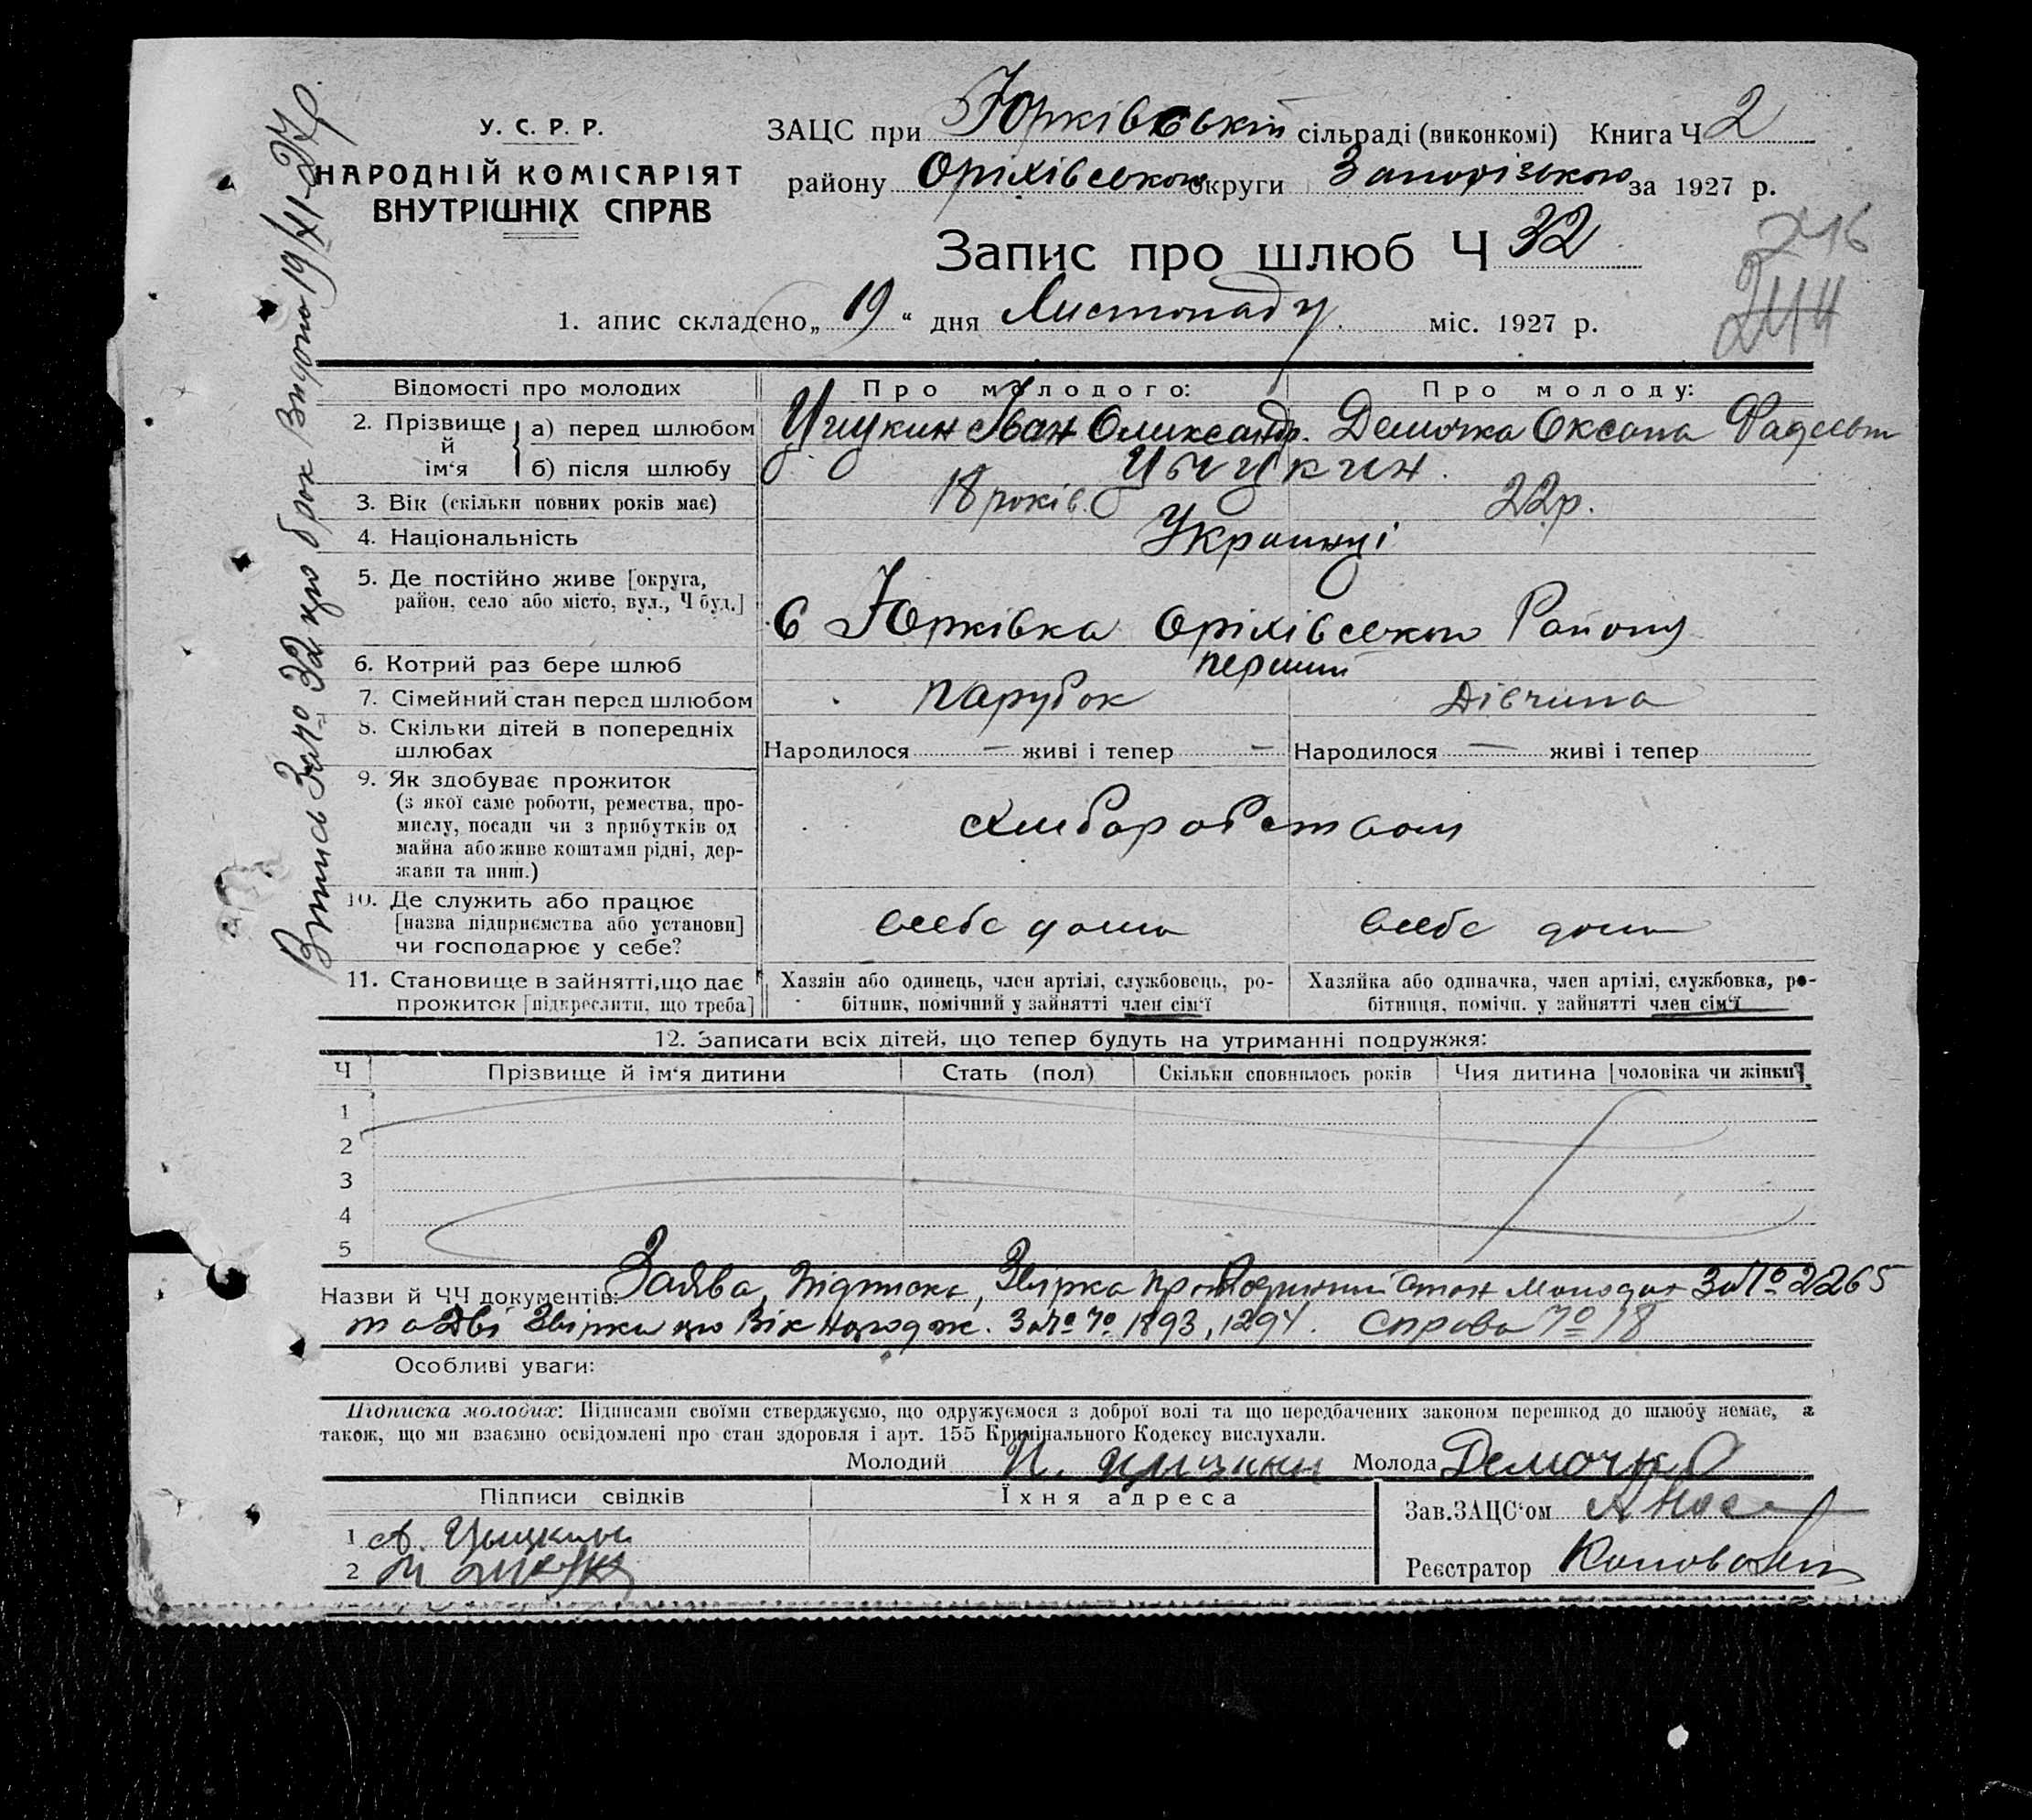 У. С. Р. Р.
НАРОДНІЙ КОМІСАРІЯТ
ВНУТРІШНІХ СПРАВ
ЗАЦС при Юрківській сільраді (виконкомі) Книга Ч 2
району Оріхівського округи Запорізького за 1927 р.
Запис про шлюб Ч 32
216
244
1. апис складено „ 19 “ дня Листопаду міс. 1927 р.
Відомості про молодих
Про молодого:
Про молоду:
2. Прізвище й ім‘я
а) перед шлюбом
Іван Олександр.
Демочка Оксана Фадеевн
б) після шлюбу
3. Вік (скільки повних років має)
18 років.
22р.
4. Національність
Украинці
5. Де постійно живе [округа,
район, село або місто, вул., Ч буд.]
С Юрківка Оріхівського Району
6. Котрий раз бере шлюб
перший
7. Сімейний стан перед шлюбом
парубок
дівчина
8. Скільки дітей в попередніх
шлюбах
Народилося — живі і тепер —
Народилося — живі і тепер
9. Як здобуває прожиток
(з якої саме роботи, ремества, про-
мислу, посади чи з прибутків од
майна або живе коштами рідні, дер-
жави та инш.)
хлиборобством
10. Де служить або працює
[назва підприємства або установи]
чи господарює у себе?
всебе дома
всебе дома
11. Становище в зайнятті, що дає
прожиток [підкреслити, що треба]
Хазяін або одинець, член артілі, службовець, ро-
бітник, помічний у зайнятті член сім‘ї
Хазяйка або одиначка, член артілі, службовка, ро-
бітниця, помічн. у зайнятті член сім‘ї
12. Записати всіх дітей, що тепер будуть на утриманні подружжя:
Ч
Прізвище й ім‘я дитини
Стать (пол)
Скільки сповнилось років
Чия дитина [чоловіка чи жінки]
1
2
3
4
5
Назви й ЧЧ документів: Заява, підписка, Звірка про стан молодого за № 2265
та дві Звірки про вік народж. за №№ 1893, 1294. Справа № 18
Особливі уваги:
Підписка молодих: Підписами своїми стверджуємо, що одружуємося з доброї волі та що передбачених законом перешкод до шлюбу немає, а
також, що ми взаємно освідомлені про стан здоровля і арт. 155 Кримінального Кодексу вислухали.
Молодий
Молода Демочка
Підписи свідків
Їхня адреса
Зав. ЗАЦС‘ом
1
2
Реєстратор
Випись за № 32 про брак видано 19/XI-27р.